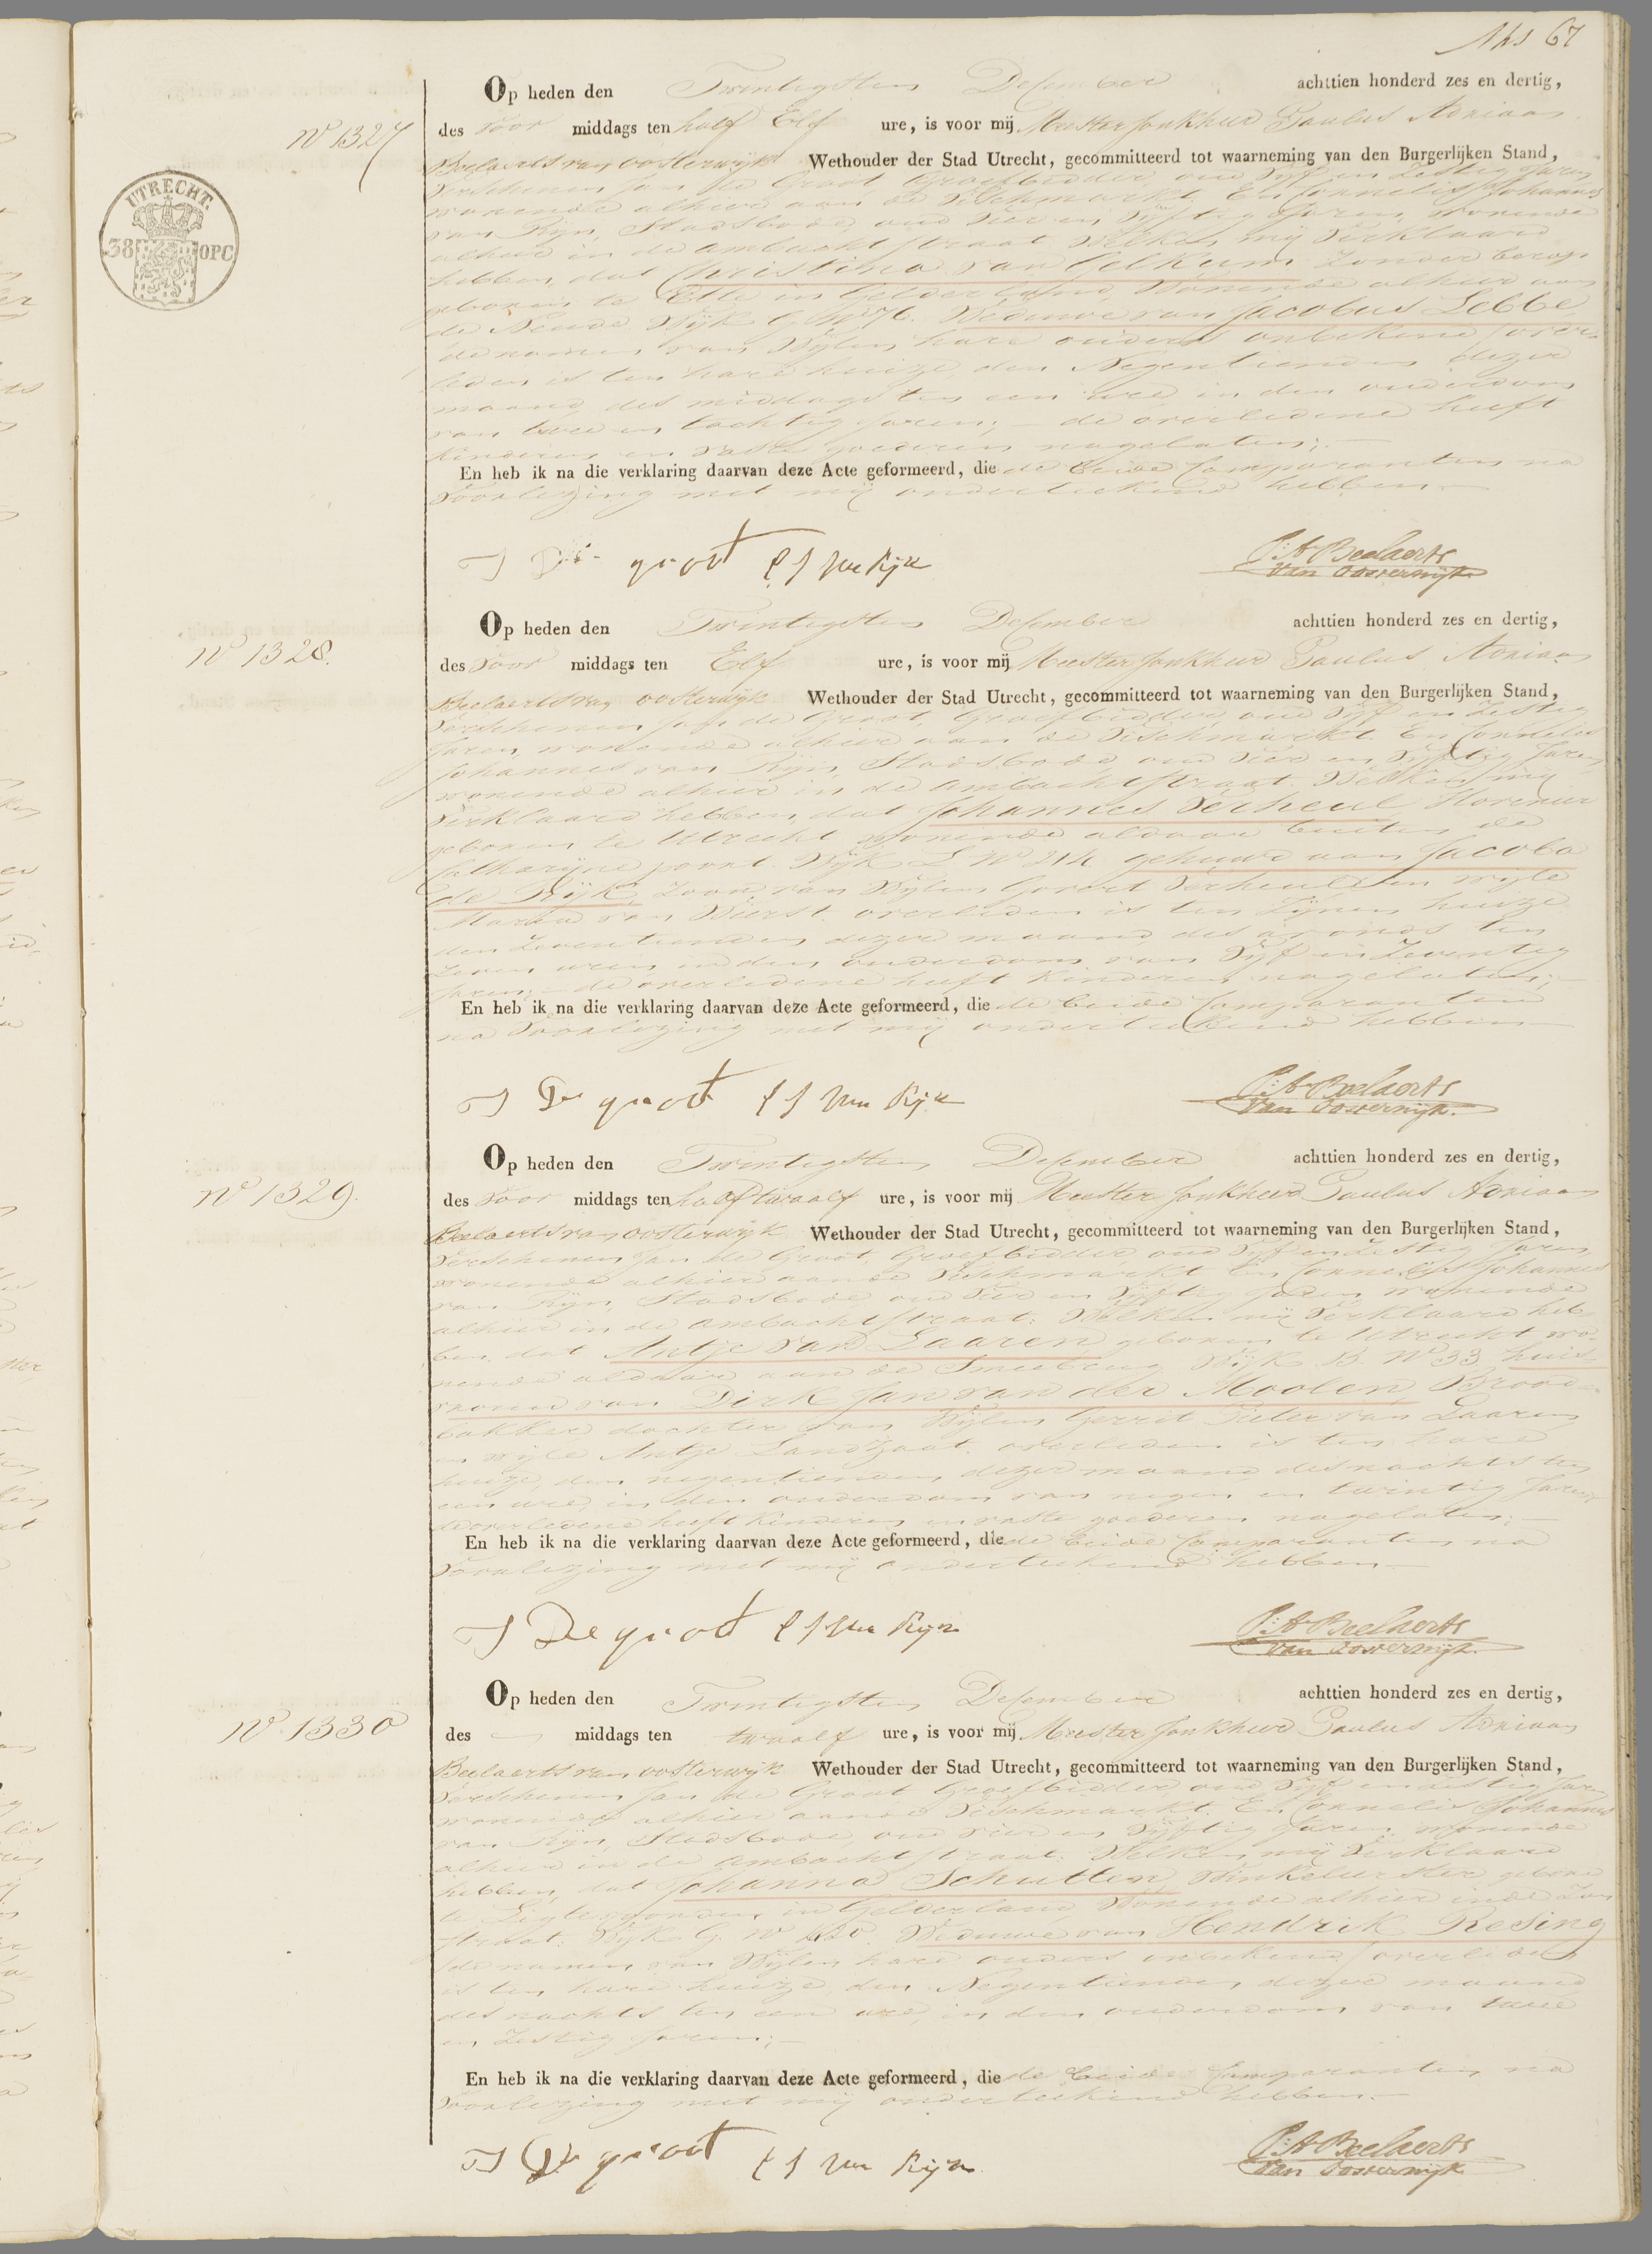 67
Op heden den Twintigsten December achttien honderd zes en dertig,
No 1327
des voor middags ten half Elf ure, is voor mij Meester Jonkheer Paulus Adriaan
Beelaerts van Oosterwijk Wethouder der Stad Utrecht, gecommitteerd tot waarneming van den Burgerlijken Stand,
UTRECHT.
38 OPC
Verschenen Jan de Groot Groefbidder, oud Vijf en Zestig Jaren
wonende alhier aan de Vischmarkt. En Cornelis Johannes
van Rijn, Stadsbode, oud Vier en Vijftig Jaren, wonende
alhier in de Ambachtstraat, Welken mij Verklaard
hebben, dat Christina van Gelkum Zonder beroep
geboren te Elle in Gelderland, Wonende alhier aan
de Neude Wijk G No 76. Weduwe van Jacobus Lobbe,
de namen van Wijlen hare ouders onbekend, over-
leden is ten hare huize, den Negentienden dezer
maand des middags ten een ure in den ouderdom
van twee en tachtig Jaren; de overledene heeft
kinderen en vaste goederen nagelaten;
En heb ik na die verklaring daarvan deze Acte geformeerd, die de beide Comparanten na
Voorlezing met mij onderteekend hebben
J De groot C J van Rijn P: A. Beelaerts
van Oosterwijk
Op heden den Twintigsten December achttien honderd zes en dertig,
No 1328.
des voor middags ten Elf ure, is voor mij Meester Jonkheer Paulus Adriaan
Beelaerts van Oosterwijk Wethouder der Stad Utrecht, gecommitteerd tot waarneming van den Burgerlijken Stand,
Verschenen Jan de Groot, Groefbidder, oud Vijf en Zestig
Jaren, wonende alhier aan de Vischmarkt. En Cornelis
Johannes van Rijn, Stadsbode oud Vier en Vijftig Jaren,
wonende alhier in de Ambachtstraat, Welken mij
Verklaard hebben, dat Johannes Verheul Hovenier
geboren te Utrecht wonende aldaar buiten de
Catharijne poort. Wijk L No 214 gehuwd aan Jacoba
de Rijk, Zoon van Wijlen Govert Verheul en wijle
Maria van overleden is ten Zijnen huize
den Zeventienden dezer maand des avonds ten
Zeven uren in den ouderdom van Vijf en Zeventig
Jaren; de overledene heeft kinderen nagelaten;
En heb ik na die verklaring daarvan deze Acte geformeerd, die de beide Comparanten
na Voorlezing met mij onderteekend hebben
J De groot C J van Rijn P: A. Beelaerts
van Oosterwijk.
Op heden den Twintigsten December achttien honderd zes en dertig,
No 1329.
des voor middags ten half twaalf ure, is voor mij Meester Jonkheer Paulus Adriaan
Beelaerts van Oosterwijk Wethouder der Stad Utrecht, gecommitteerd tot waarneming van den Burgerlijken Stand,
Verschenen Jan de Groot, Groefbidder, oud Vijf en Zestig Jaren
wonende alhier aan de Vischmarkt En Cornelis Johannes
van Rijn, Stadsbode oud Vier en Vijftig Jaren, wonende
alhier in de Ambachtstraat. Welken mij Verklaard heb-
ben, dat Antje van Laaren geboren te Utrecht wo-
nende aldaar aan de Smeebrug Wijk B. No 33, huis-
vrouw van Dirk Jan van der Moolen Brood-
bakker dochter van Wijlen Gerrit Pieter van Laaren
en wijle Antje Landzaat. overleden is ten hare
huize, den negentienden dezer maand des nachts ten
een ure, in den ouderdom van negen en twintig Jaren
de overledene heeft kinderen en vaste goederen nagelaten;
En heb ik na die verklaring daarvan deze Acte geformeerd, die de beide Comparanten na
Voorlezing met mij onderteekend hebben
J De groot C J van Rijn P: A. Beelaerts
van Oosterwijk.
Op heden den Twintigsten December achttien honderd zes en dertig,
No 1330
des middags ten twaalf ure, is voor mij Meester Jonkheer Paulus Adriaan
Beelaerts van Oosterwijk Wethouder der Stad Utrecht, gecommitteerd tot waarneming van den Burgerlijken Stand,
Verschenen Jan de Groot Groefbidder, oud Vijf en Zestig Jaren
wonende alhier aan de Vischmarkt. En Cornelis Johannes
van Rijn, Stadsbode, oud Vier en Vijftig Jaren, wonende
alhier in de Ambachtstraat. Welken mij Verklaard
hebben, dat Johanna Schutten, Winkelierster geboren
te in Gelderland Wonende alhier in de
straat. Wijk G. No Weduwe van Hendrik Resing
de namen van Wijlen hare ouders onbekend, overleden
is ten hare huize, den Negentienden dezer maand
des nachts ten een ure, in den ouderdom van twee
en Zestig Jaren;
En heb ik na die verklaring daarvan deze Acte geformeerd, die de beide Comparanten na
Voorlezing met mij onderteekend hebben.
J De groot C J van Rijn P: A. Beelaerts
van Oosterwijk